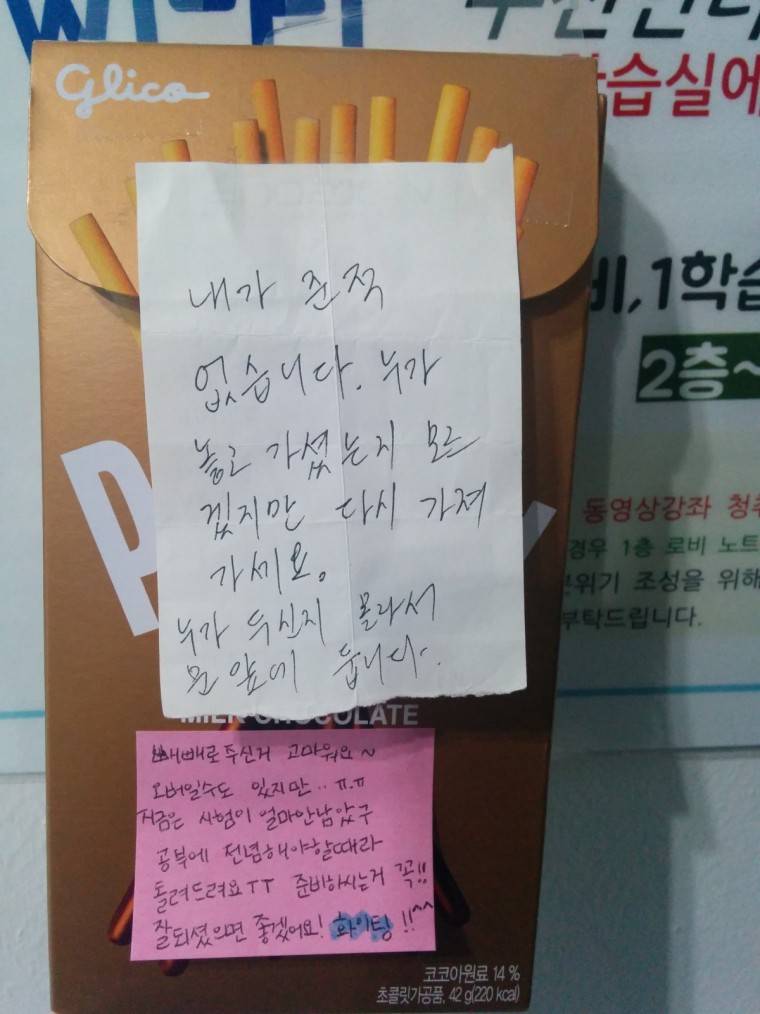 Glico
습실에
내가 준적
없습니다. 누가
놓고 가셨는지 모르
겠지만 다시 가져
가세요.
누가 두신지 몰라서
문 앞에 둡니다.
비,1학습
2층~
동영상강좌 청취
경우 1층 로비 노트
분위기 조성을 위해
부탁드립니다.
MILK CHOCOLATE
빼빼로주신거 고마워요~
오버일수도 있지만.. ㅠ.ㅠ
지금은 시험이 얼마안남았구
공부에 전념해야할때라
돌려드려요ㅜㅜ 준비하시는거 꼭!!
잘되셨으면 좋겠어요! 화이팅!!^^
코코아원료 14 %
초콜릿가공품, 42 g(220 kcal)